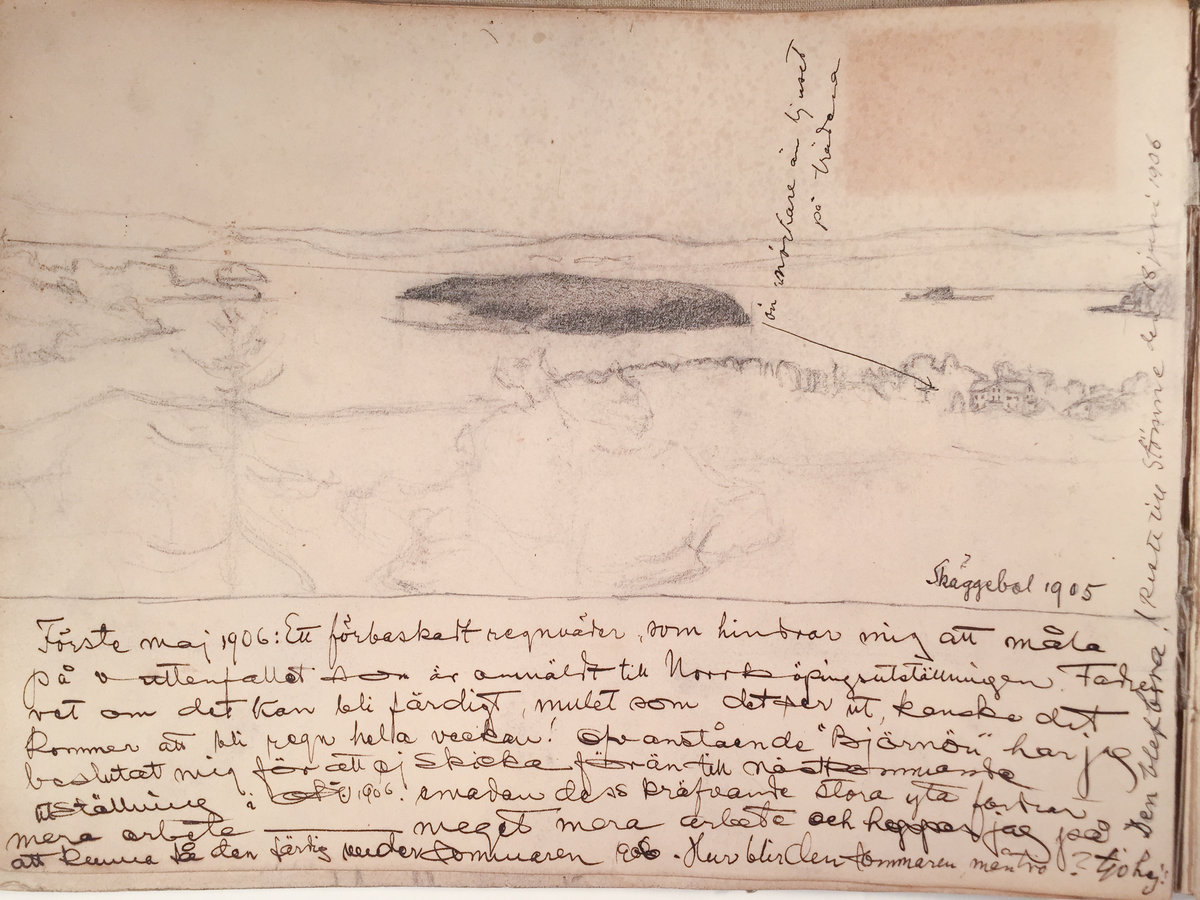 ön mörkare än ljuset
på träden
Skäggebol 1905
Förste maj 1906: Ett förbaskadt regnväder, som hindrar mig att måla
på vattenfallet som är anmäldt till Norrköpingsutställningen. Fadren
vet om det kan bli färdigt, mulet som det ser ut, kanske det
kommer att bli regn hela veckan! Ofvanstående "Björnön" har jag
beslutat mig för att ej skicka förän till nästkommande
utställning i 1906. emedan dess kräfvande stora yta fordrar
mera arbete meget mera arbete och hoppas jag på
att kunna få den färdig under sommaren 1906. Hur blir den sommaren, mån tro? Tjohej!
Den blef bra, (Reste till Stömne den 18 juni 1906